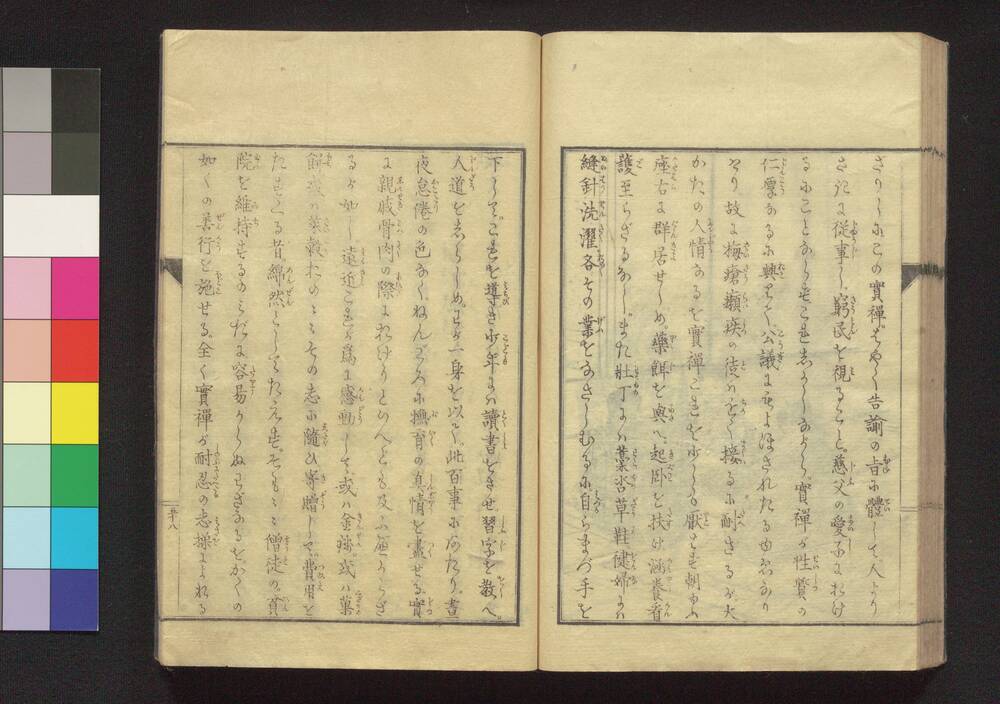 ざりしにこの實禪はやく告諭の旨に體して人より
さきに從事し窮民を視ること慈父の愛子におけ
るにことならずこれしかしながら實禪が性質の
仁厚なるに興りて公議にもよほされたるゆゑなり
故に梅瘡癩疾の徒はをく接るに耐ざるが大
かたの人情なるを實禪これを少しも厭はず朝ゆふ
座右に群居せしめ藥餌を與へ起卧を扶け涵養看
護至らざるなしまた壮丁には藁沓草鞋健婦には
縫針洗濯各その業をなさしむるに自らまづ手を
下してこれを導き少年には讀書をさせ習字を教へ
人道をしらしめわが一身を以て此百事にあたり晝
夜怠倦の色なくねんごろに撫育の真情を盡せる實
に親戚骨肉の際におけりといへども及ぶ可からざ
るが如し遠近これが為に感動して或は金錢或は菓
餌或は菜穀木のミその志に隨ひ寄贈して費用を
たすくる昔綿然としてたえずそも〳〵僧徒の貧
院を維持するのミだに容易からぬわざなるをかくの
如くの善行を施せる全く實禪が耐忍の志操によれる
五十八